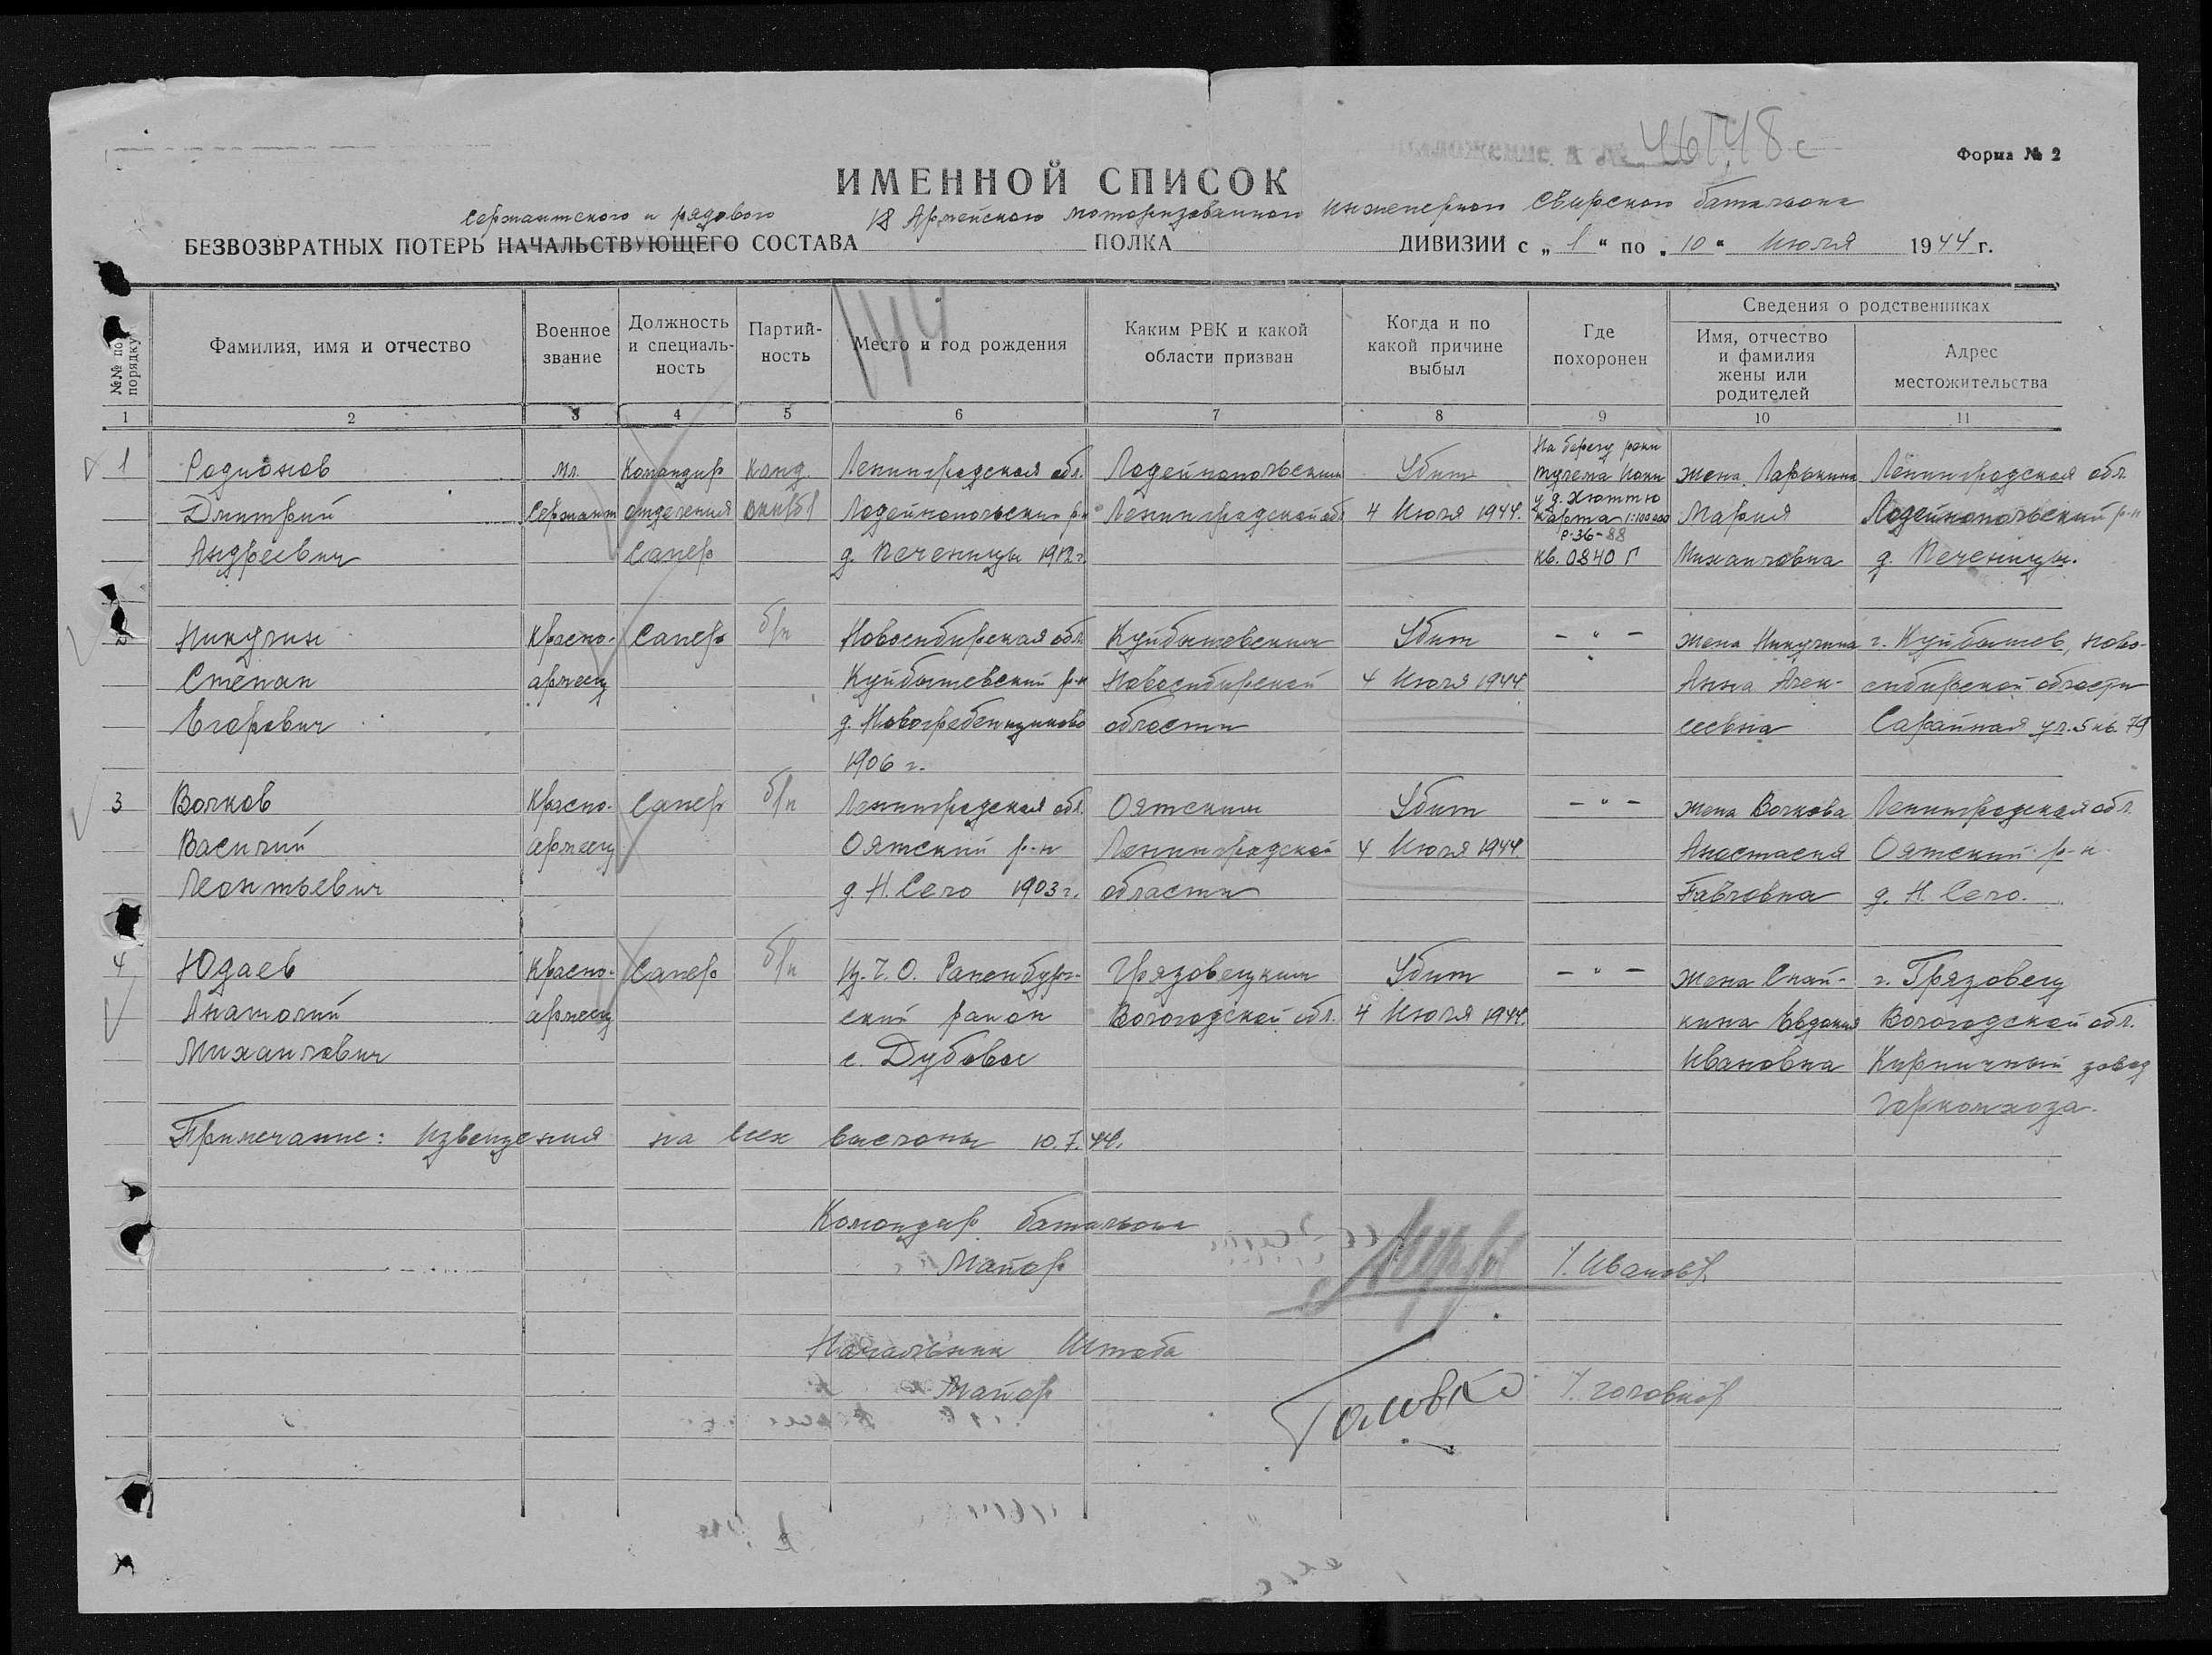 46748с
Форма № 2
ИМЕННОЙ СПИСОК
сержантского и рядового 18 Армейского моторизованного инженерного Свирского батальона
БЕЗВОЗВРАТНЫХ ПОТЕРЬ НАЧАЛЬСТВУЮЩЕГО СОСТАВА ПОЛКА ДИВИЗИИ с „1“ по „10“ Июля 1944 г.
144
№№ по порядку
Фамилия, имя и отчество
Военное звание
Должность и специаль-ность
Партий-ность
Место и год рождения
Каким РВК и какой области призван
Когда и по какой причине выбыл
Где похоронен
Сведения о родственниках
Имя, отчество и фамилия жены или родителей
Адрес местожительства
1 2 3 4 5 6 7 8 9 10 11
На берегу реки
1 Родионов мл. Командир канд. Ленинградская обл. Лодейнопольским Убит Тулема Йоки жена Ларькина Ленинградская обл.
у д. Хюттю
Дмитрий Сержант отделения ВКП(б) Лодейнопольский р-н Ленинградской обл 4 Июля 1944. карта 1:100000 Мария Лодейнопольский р-н
Р-36-88
Андреевич Сапер д. Печеницы 1912 г. кв. 0840 Г Михайловна д. Печеницы.
2 Никулин Красно- Сапер б/п Новосибирская обл. Куйбышевским Убит — " — жена Никулина г. Куйбышев, Ново-
Степан армеец Куйбышевский р-н Новосибирской 4 Июля 1944 Анна Алек- сибирской области
Егорович д. Новогребенщиково области сеевна Сарайная ул. 5 кв. 79
1906 г.
3 Волков Красно- Сапер б/п Ленинградская обл. Оятским Убит — " — жена Волкова Ленинградская обл.
Василий армеец Оятский р-н Ленинградской 4 Июля 1944. Анастасия Оятский р-н
Леонтьевич д. Н. Село 1903 г. области Павловна д. Н. Село.
4 Юдаев Красно- Сапер б/п Ц.Ч.О. Раненбург- Грязовецким Убит — " — жена Скай- г. Грязовец
Анатолий армеец ский район Вологодской обл. 4 Июля 1944. кина Евдокия Вологодской обл.
Михайлович с. Дубовое Ивановна Кирпичный завод
Горкомхоза.
Примечание: Извещения на всех высланы 10.7.44.
Командир батальона
Майор /Иванов/
Начальник Штаба
Майор Головко /Головко/